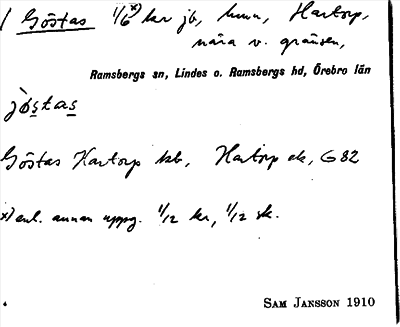 / Göstas 1/6 x) kr jb, hmn, Hartorp,
nära v. gränsen,
Ramsbergs sn, Lindes o. Ramsbergs hd, Örebro län
jòstas
Göstas Hartorp kb, Hartorp ek, G 82
x) enl. annan uppg. 1/12 kr, 1/12 sk.
SAM JANSSON 1910